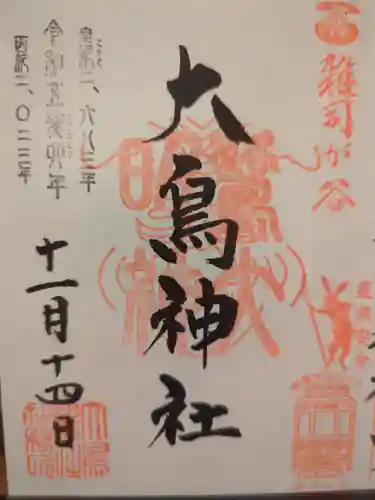 雑司が谷
大鳥神社
皇紀二、六八三年
令和五癸卯年
西紀二、〇二三年
十一月十四日